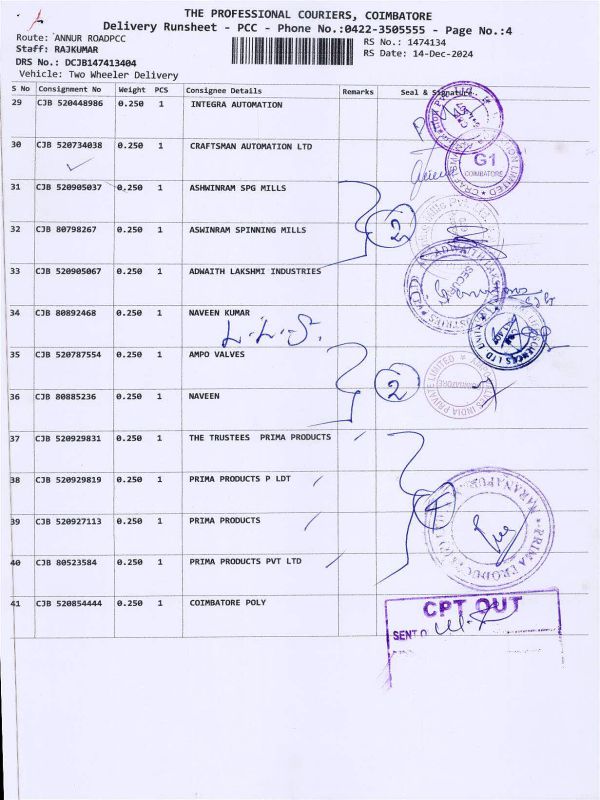 THE PROFESSIONAL COURIERS, COIMBATORE
Delivery Runsheet - PCC - Phone No.:0422-3505555 - Page No.:4
Route: ANNUR ROADPCC
RS No.: 1474134
Staff: RAJKUMAR
RS Date: 14-Dec-2024
DRS No.: DCJB147413404
Vehicle: Two Wheeler Delivery
S No Consignment No Weight PCS Consignee Details Remarks Seal & Signature
29 CJB 520448986 0.250 1 INTEGRA AUTOMATION
30 CJB 520734038 0.250 1 CRAFTSMAN AUTOMATION LTD
G1
COIMBATORE
31 CJB 520905037 0.250 1 ASHWINRAM SPG MILLS
32 CJB 80798267 0.250 1 ASWINRAM SPINNING MILLS
33 CJB 520905067 0.250 1 ADWAITH LAKSHMI INDUSTRIES
34 CJB 80892468 0.250 1 NAVEEN KUMAR
35 CJB 520787554 0.250 1 AMPO VALVES
2
36 CJB 80885236 0.250 1 NAVEEN
37 CJB 520929831 0.250 1 THE TRUSTEES PRIMA PRODUCTS
38 CJB 520929819 0.250 1 PRIMA PRODUCTS P LDT
39 CJB 520927113 0.250 1 PRIMA PRODUCTS
40 CJB 80523584 0.250 1 PRIMA PRODUCTS PVT LTD
41 CJB 520854444 0.250 1 COIMBATORE POLY
CPT OUT
SENT